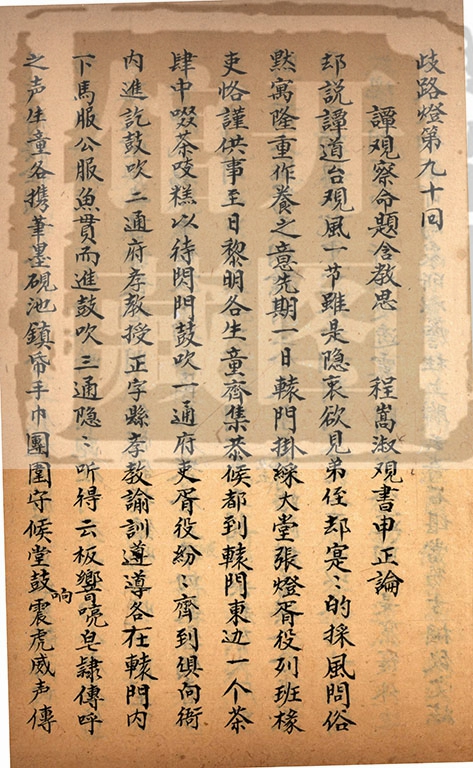 歧路燈第九十回
譚观察命題含教思　程嵩淑观書申正論
却説譚道台观風一节雖是隐衷欲見弟侄却寔〻的採風問俗
默寓隆重作養之意先期一日轅門掛綵大堂張燈胥役列班椽
吏恪謹供事至日黎明各生童齊集恭候都到轅門東边一个茶
肆中啜茶咬糕以待閃門鼓吹一通府吏胥役紛〻齊到俱向衙
内進訖鼓吹二通府孝教授正字縣孝教諭訓導導各在轅門内
下馬服公服魚貫而進鼓吹三通隐〻听得云板響喨皂隷傳呼
响
之声生童各携筆墨硯池鎮帋手巾團圍守候堂鼓震虎威声傳